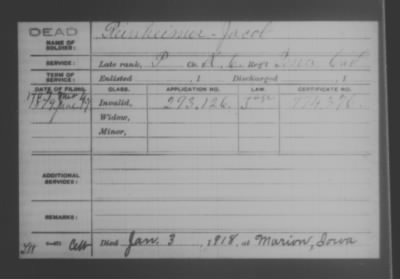 DEAD
NAME OF SOLDIER:
Reinheimer Jacob
SERVICE:
Late rank, P Co. K, 6 Reg't Iowa Cav
TERM OF SERVICE:
Enlisted , 1 Discharged , 1
DATE OF FILING. CLASS. APPLICATION NO. LAW. CERTIFICATE NO.
1879 June Invalid, 293,126.
Widow,
Minor,
ADDITIONAL SERVICES:
REMARKS:
Died Jan. 3, 1918, at Marion, Iowa